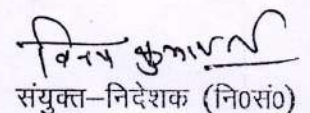 विनय कुमार
संयुक्त–निदेशक (नि0सं0)